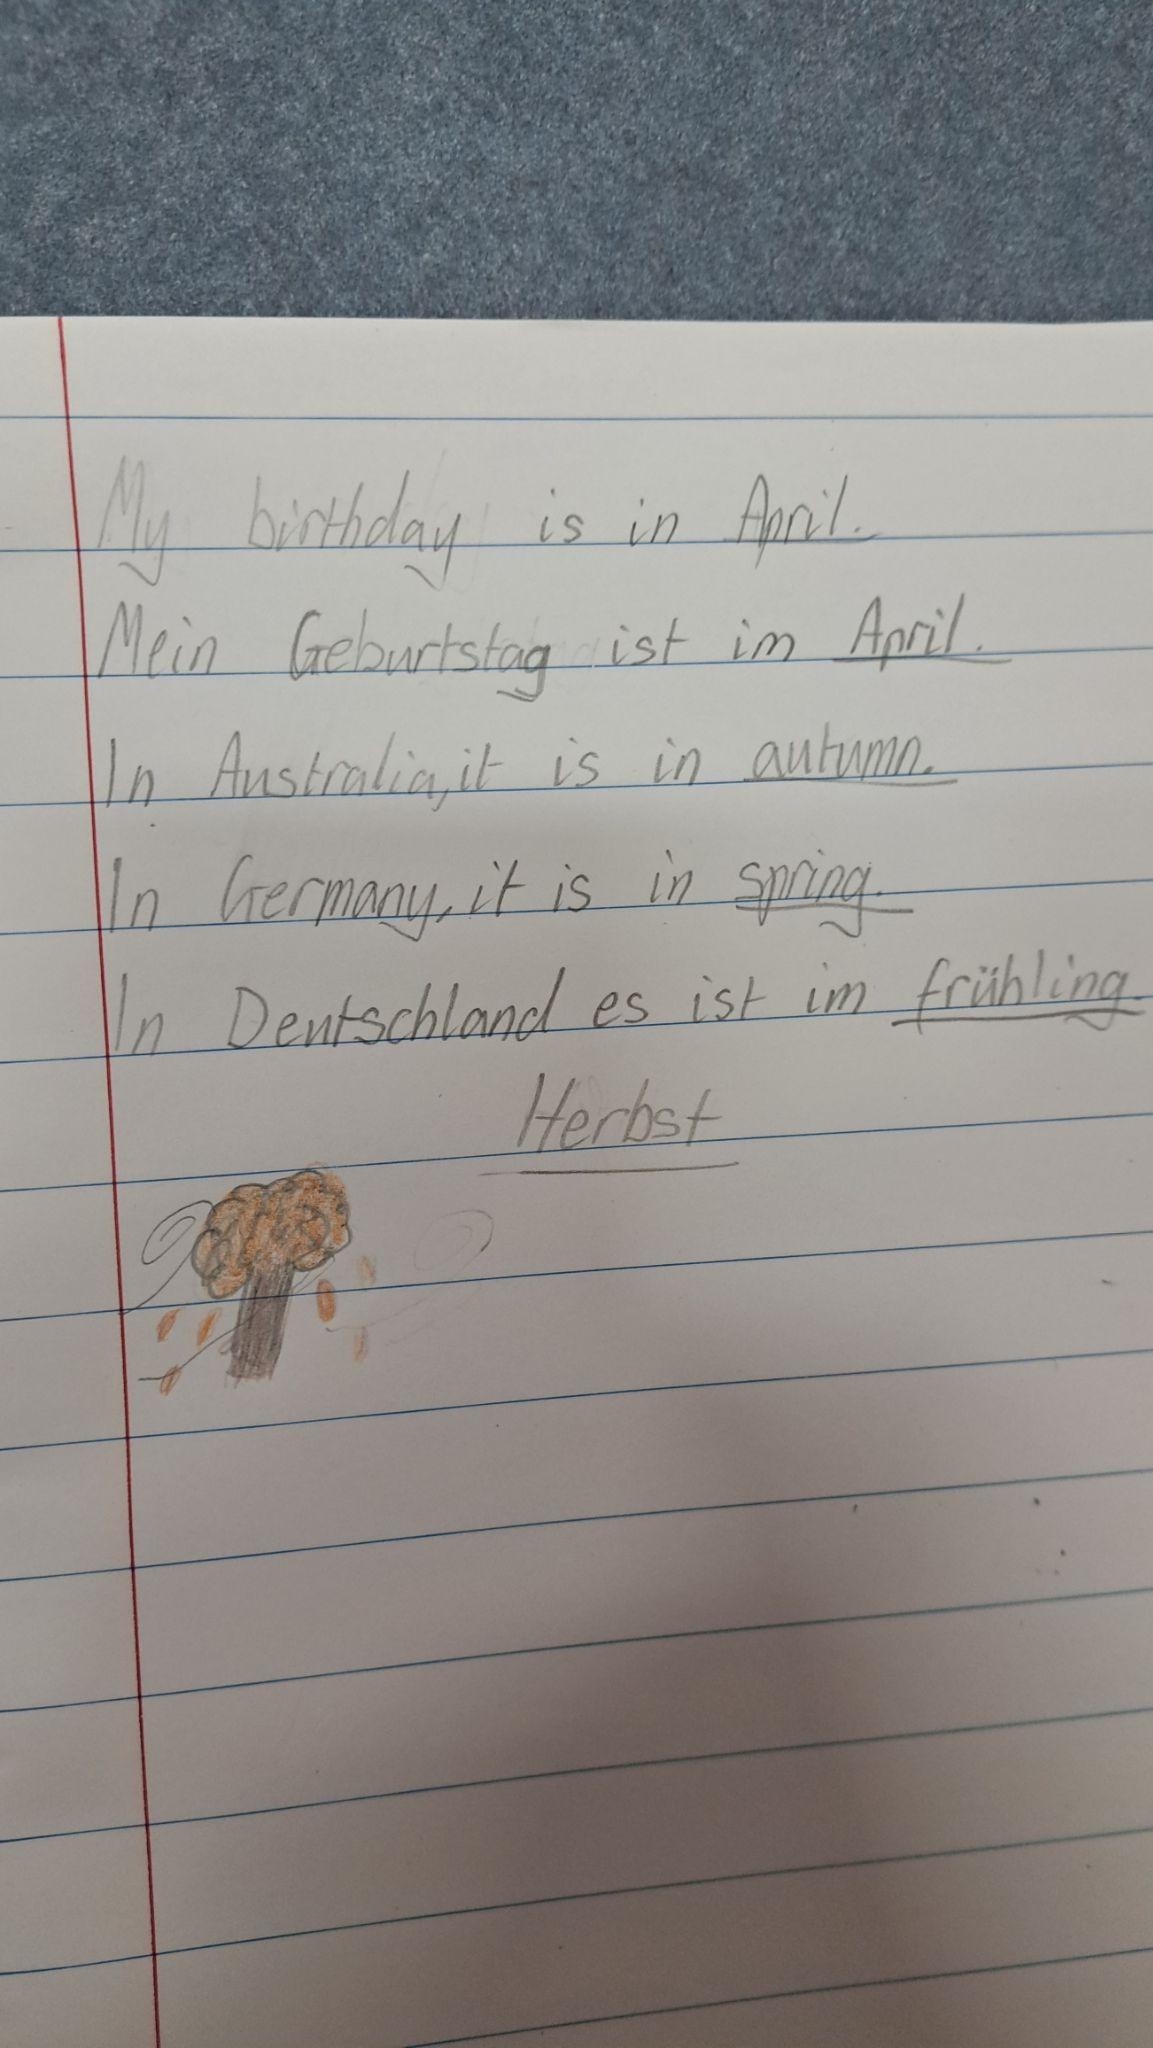 My birthday is in April.
Mein Geburtstag ist im April.
In Australia, it is in autumn.
In Germany, it is in spring.
In Deutschland es ist im frühling.
Herbst